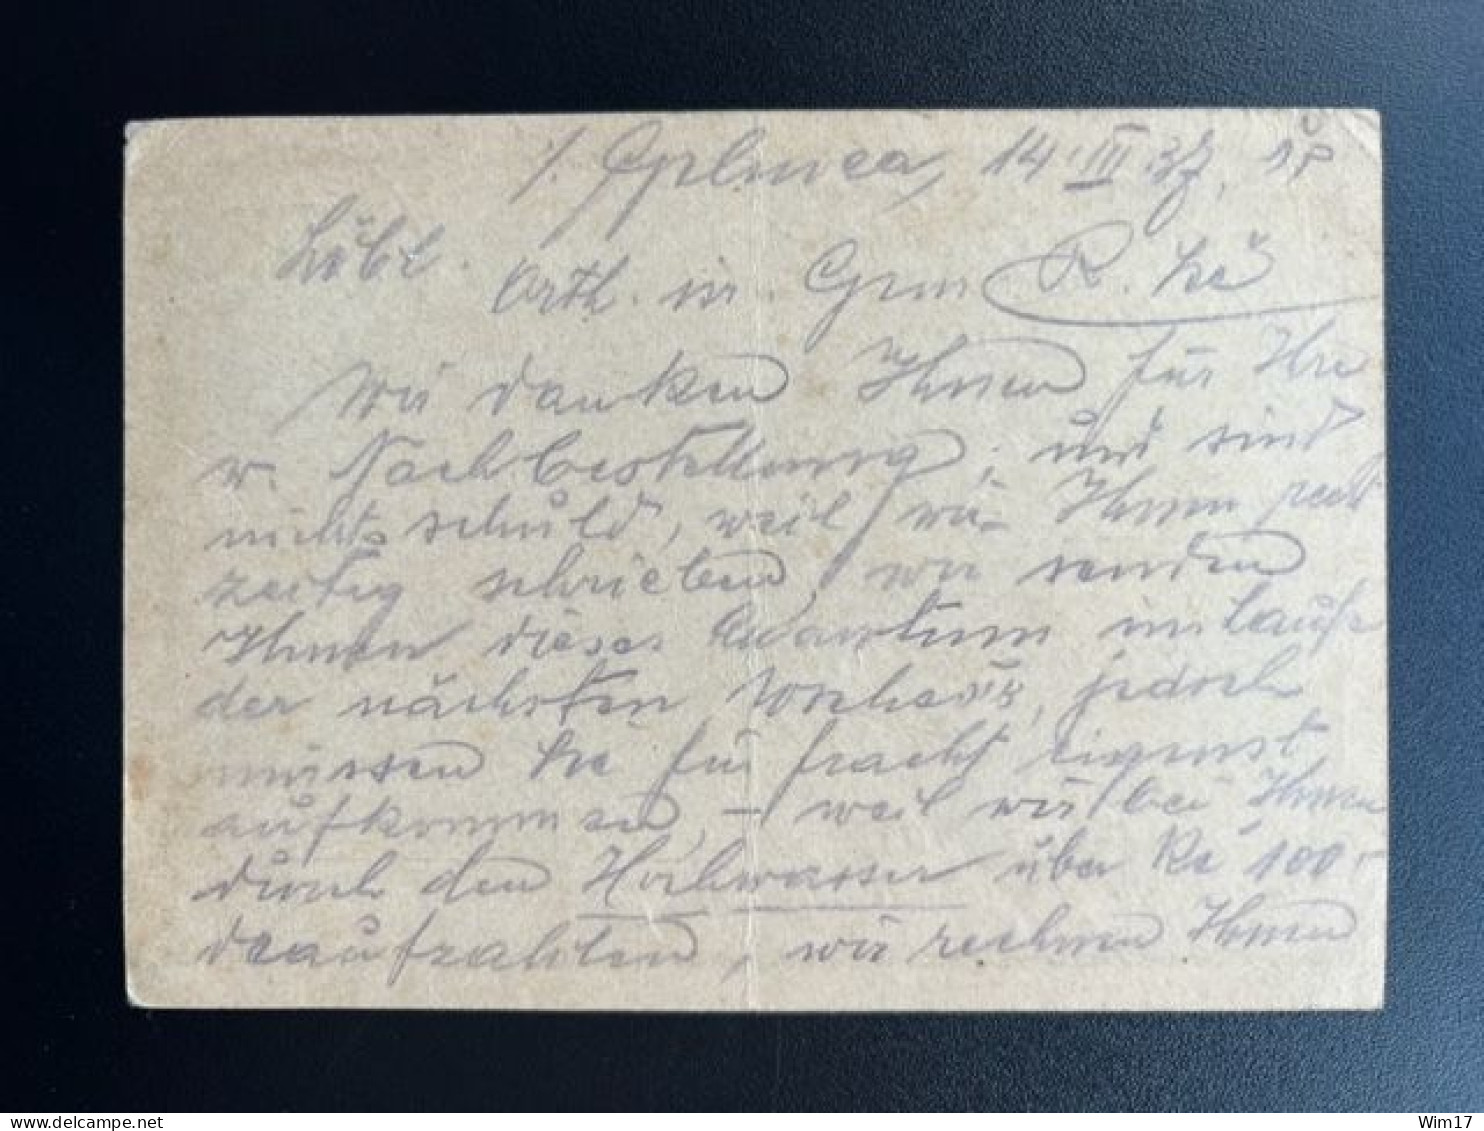 14 III 37,
Löbl.
Orth. isr.
Wir danken Ihnen für Ihre
w. Nachbestellung, und sind
nicht schuld, weil wir Ihnen recht
zeitig schrieben, wir senden
Ihnen dieses Quantum im Laufe
der nächsten Woche, jedoch
müssen Sie für Fracht eigenst
aufkommen, – weil wir bei Ihnen
durch den Hochwasser über Kč 100
draufzahlten, wir rechnen Ihnen
Wim17